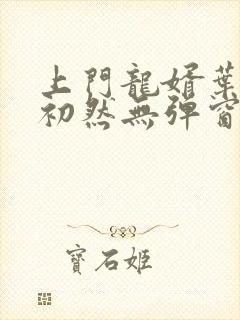 上門龍婿葉
初然無彈窗
寶石姬